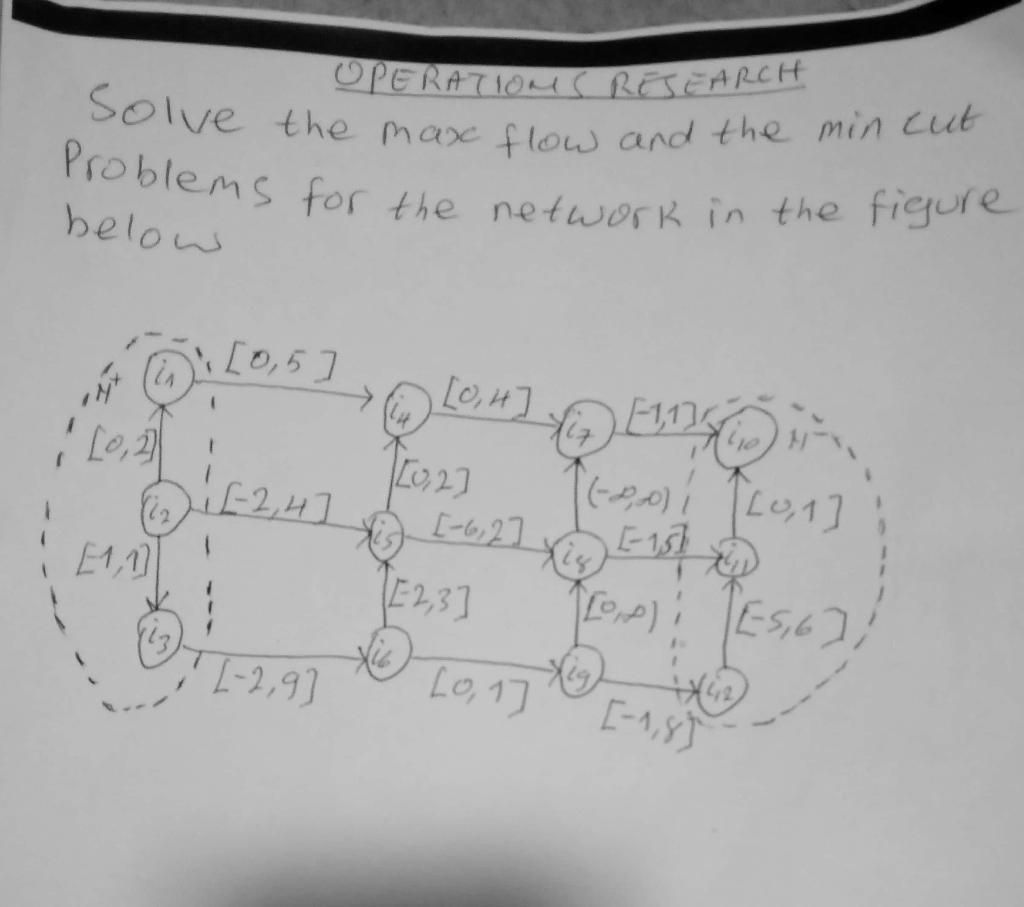 OPERATIONS RESEARCH
Solve the max flow and the min cut
Problems for the network in the figure
below
i1 [0,5] i4 [0,4] i7 [-1,1] i10
N+ N-
[0,2] [0,2] (-∞,∞) [0,1]
i2 [-2,4] i5 [-6,2] i8 [-1,5] i11
[-1,1] [-2,3] [0,∞) [-5,6]
i3 [-2,9] i6 [0,1] i9 [-1,8] i12